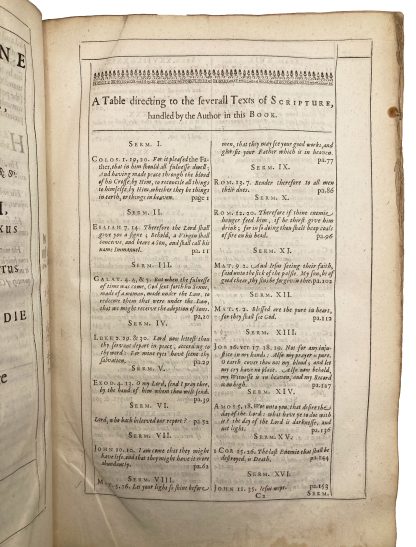 NE
,
&
I.
KUS
TUS
DIE
re
A Table directing to the severall Texts of SCRIPTURE,
handled by the Author in this BOOK.
SERM. I.
COLOS. 1. 19, 20. For it pleased the Fa-
ther, that in him should all fulnesse dwell;
and having made peace through the blood
of his Crosse, by Him, to reconcile all things
to himselfe, by Him, whether they be things
in earth, or things in heaven. page 1
SERM. II.
ESAIAH 7. 14. Therefore the Lord shall
give you a signe; behold, a Virgin shall
conceive, and beare a Son, and shall call his
name Immanuel. pa. 11
SERM. III.
GALAT. 4. 4, & 5. But when the fulnesse
of time was come, God sent forth his Sonne,
made of a woman, made under the Law, to
redeeme them that were under the Law,
that we might receive the adoption of sons.
pa. 20
SERM. IV.
LUKE 2. 29. & 30. Lord now lettest thou
thy servant depart in peace, according to
thy word: For mine eyes have seene thy
salvation. pa. 29
SERM. V.
EXOD. 4. 13. O my Lord, send I pray thee,
by the hand of him whom thou wilt send.
pa. 39
SERM. VI.
Lord, who hath beleeved our report? pa. 52
SERM. VII.
JOHN 10. 10. I am come that they might
have life, and that they might have it more
abundantly. pa. 62
SERM. VIII.
MAT. 5. 16. Let your light so shine before
men, that they may see your good works, and
glorifie your Father which is in heaven.
pa. 77
SERM. IX.
ROM. 13. 7. Render therefore to all men
their dues. pa. 86
SERM. X.
ROM. 12. 20. Therefore if thine enemy
hunger feed him, if he thirst give him
drink; for in so doing thou shalt heap coals
of fire on his head. pa. 96
SERM. XI.
MAT. 9. 2. And Iesus seeing their faith,
said unto the sick of the palsie, My son, be of
good chear, thy sins be forgiven thee. pa. 102
SERM. XII.
MAT. 5. 2. Blessed are the pure in heart,
for they shall see God. pa. 112
SERM. XIII.
JOB 16. ver. 17. 18. 19. Not for any inju-
stice in my hands: Also my prayer is pure.
O earth cover thou not my blood; and let
my cry have no place. Also now behold,
my Witnesse is in heaven, and my Record
is on high. pa. 127
SERM. XIV.
AMOS 5. 18. Woe unto you, that desire the
day of the Lord: what have ye to doe with
it? the day of the Lord is darknesse, and
not light. pa. 136
SERM. XV.
1 COR. 15. 26. The last Enemie that shall be
destroyed, is Death. pa. 144
SERM. XVI.
JOHN 11. 35. Iesus wept. pa. 153
C2 SERM.